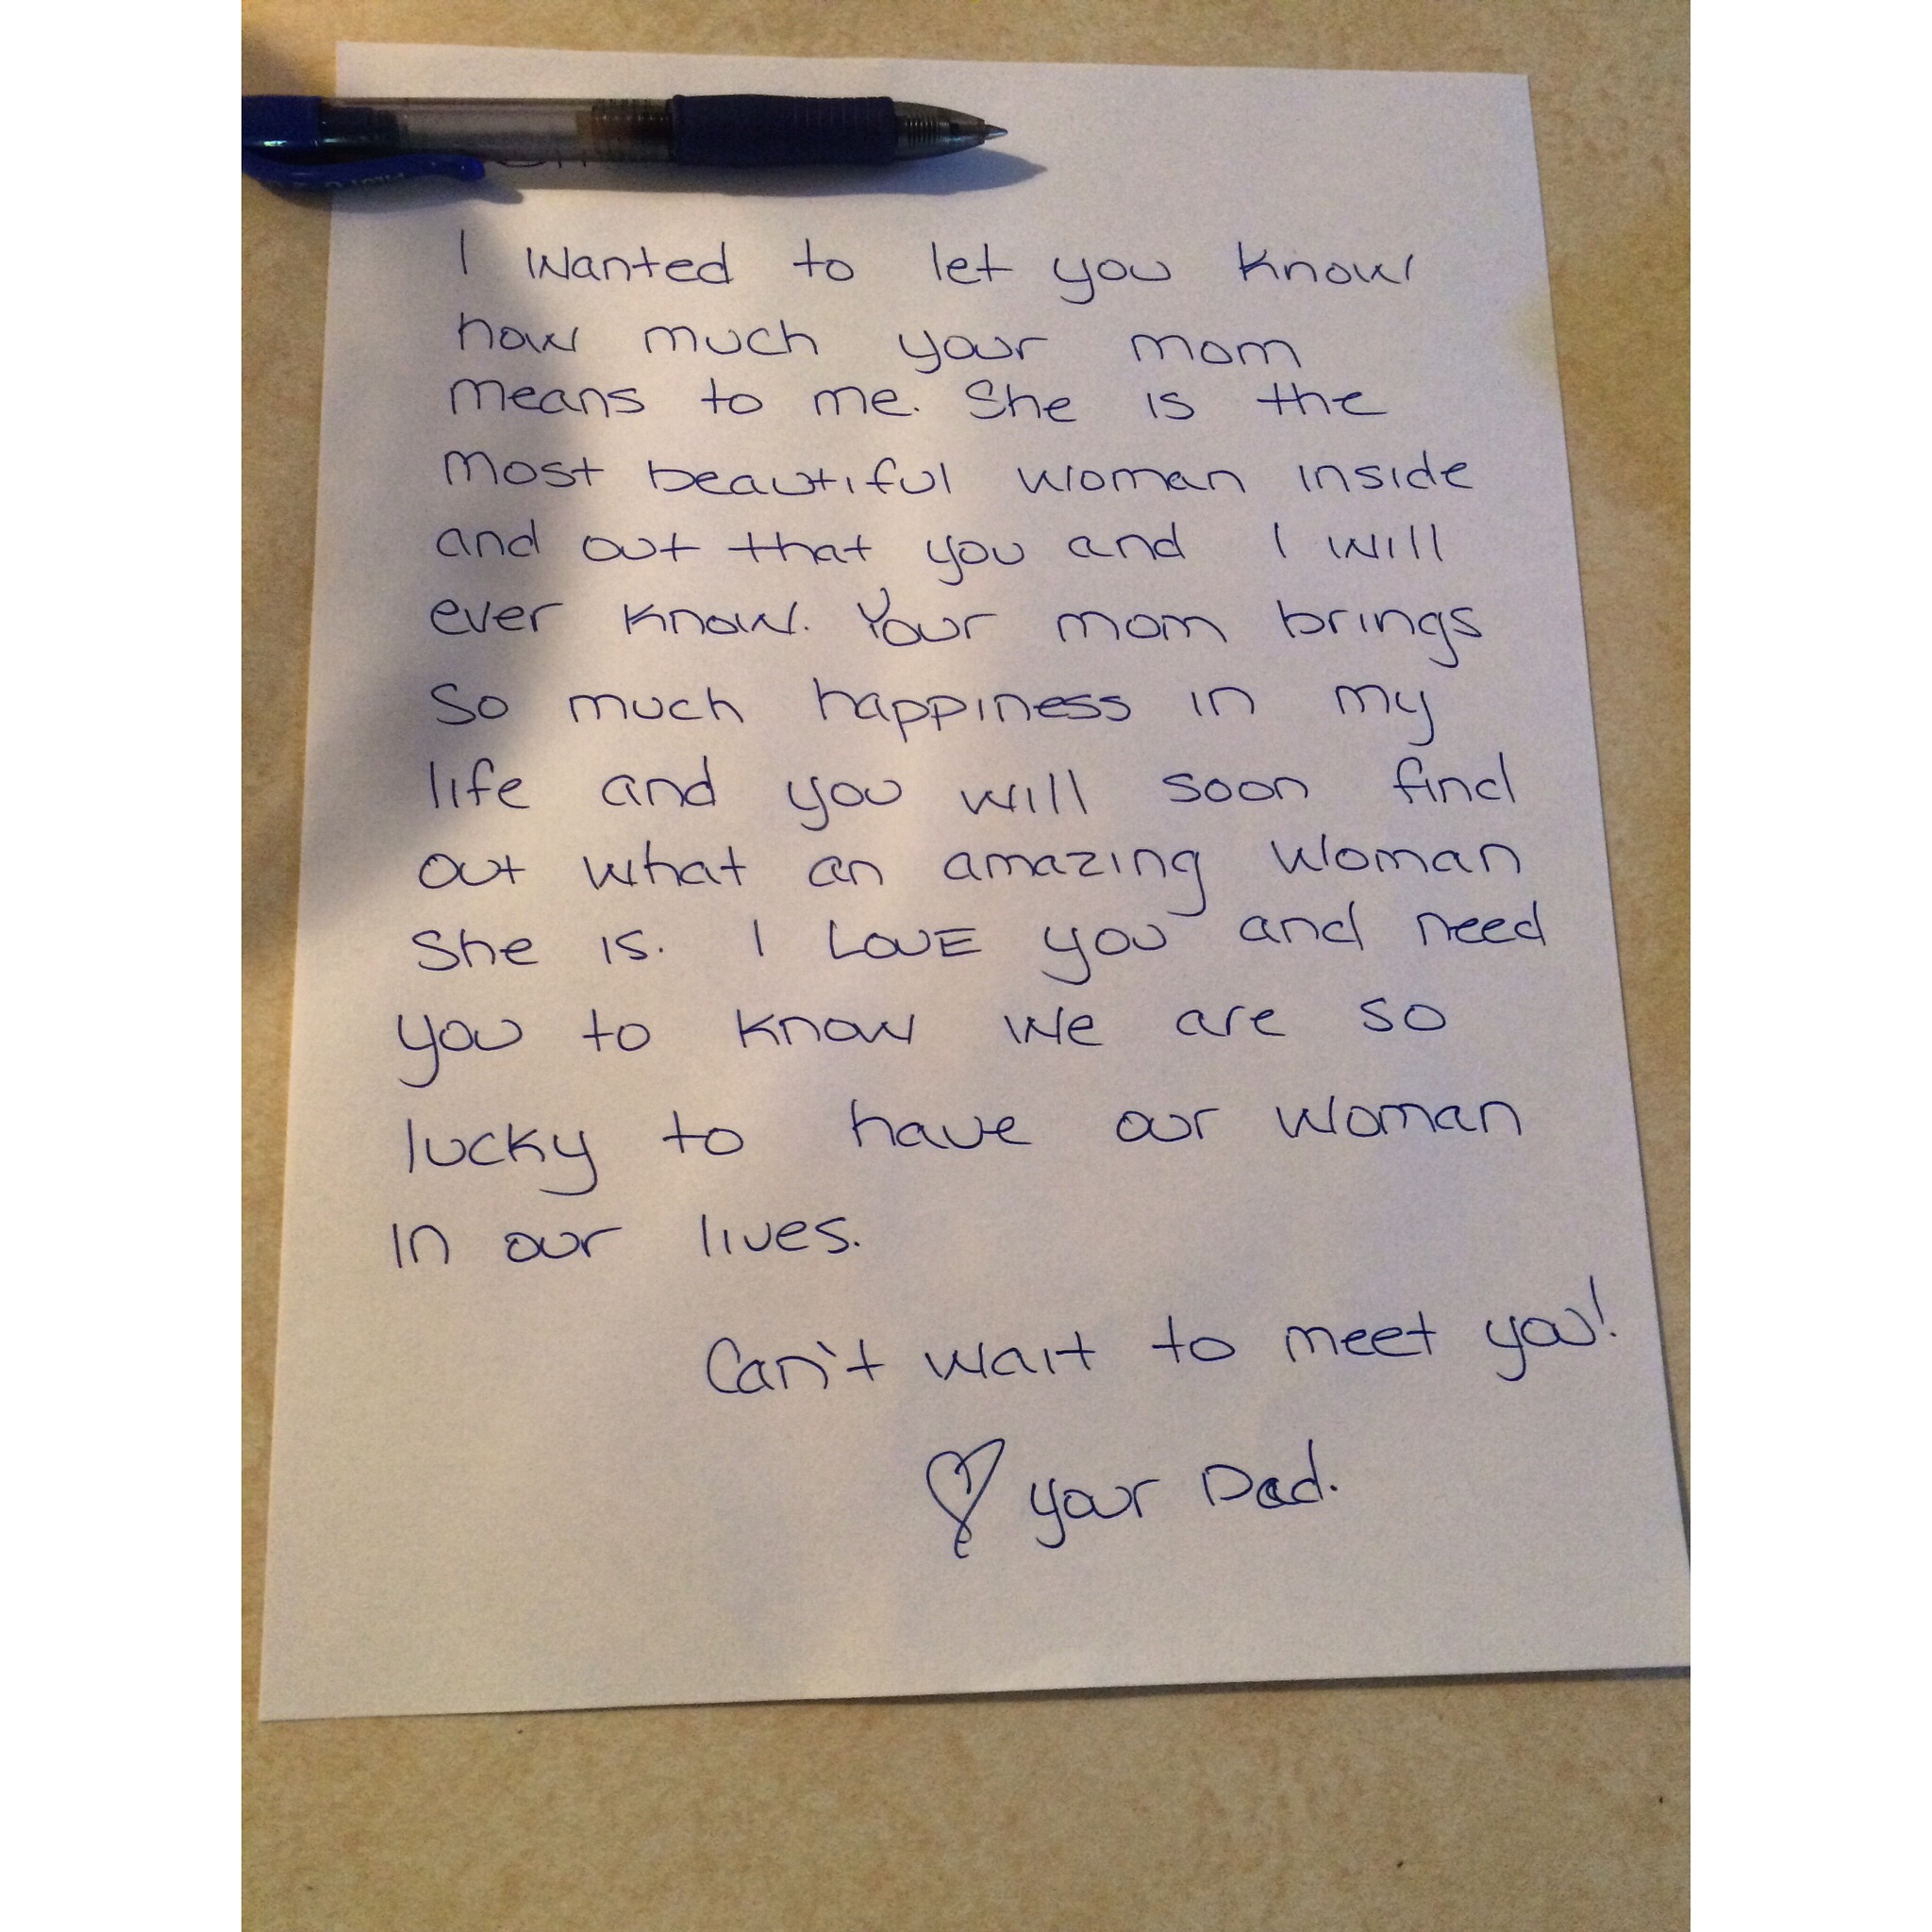 I wanted to let you know
how much your mom
means to me. She is the
most beautiful woman inside
and out that you and I will
ever know. Your mom brings
so much happiness in my
life and you will soon find
out what an amazing woman
she is. I LOVE you and need
you to know we are so
lucky to have our woman
in our lives.
Can't wait to meet you!
♡ your Dad.